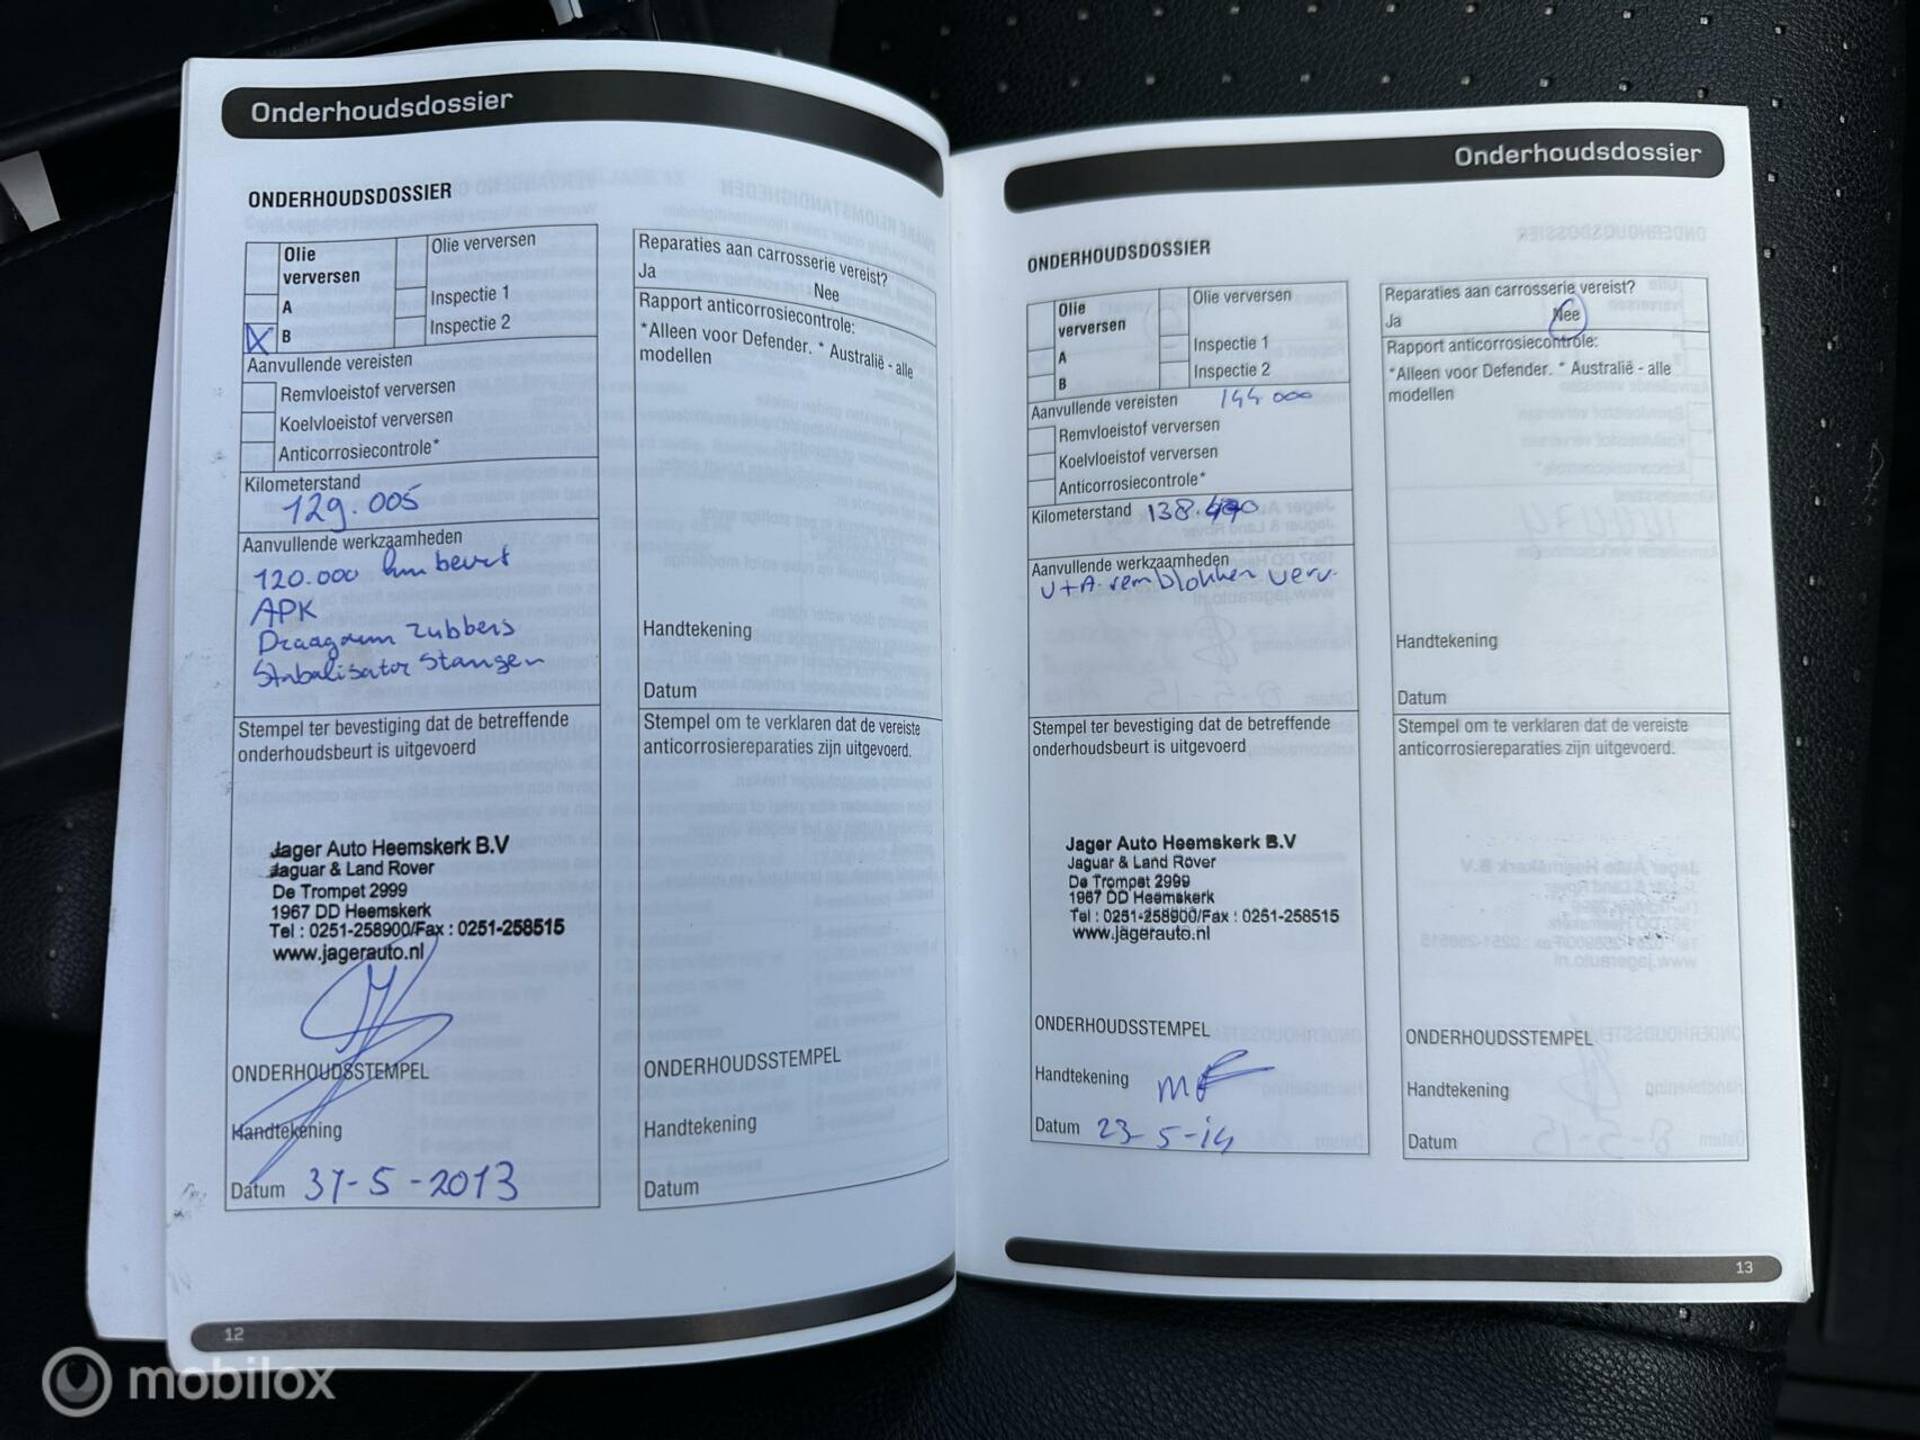 Onderhoudsdossier
ONDERHOUDSDOSSIER
Olie
verversen
A
B
Olie verversen
Inspectie 1
Inspectie 2
Aanvullende vereisten
Remvloeistof verversen
Koelvloeistof verversen
Anticorrosiecontrole*
Kilometerstand
129.005
Aanvullende werkzaamheden
120.000 km beurt
APK
Draagarm rubbers
Stabalisator Stangen
Stempel ter bevestiging dat de betreffende
onderhoudsbeurt is uitgevoerd
Jager Auto Heemskerk B.V
Jaguar & Land Rover
De Trompet 2999
1967 DD Heemskerk
Tel : 0251-258900/Fax : 0251-258515
www.jagerauto.nl
ONDERHOUDSSTEMPEL
Handtekening
Datum 31-5-2013
Reparaties aan carrosserie vereist?
Ja Nee
Rapport anticorrosiecontrole:
*Alleen voor Defender. * Australië - alle
modellen
Handtekening
Datum
Stempel om te verklaren dat de vereiste
anticorrosiereparaties zijn uitgevoerd.
ONDERHOUDSSTEMPEL
Handtekening
Datum
12
Onderhoudsdossier
ONDERHOUDSDOSSIER
Olie
verversen
A
B
Olie verversen
Inspectie 1
Inspectie 2
Aanvullende vereisten 144 000
Remvloeistof verversen
Koelvloeistof verversen
Anticorrosiecontrole*
Kilometerstand
Aanvullende werkzaamheden
V+A remblokken verv.
Stempel ter bevestiging dat de betreffende
onderhoudsbeurt is uitgevoerd
Jager Auto Heemskerk B.V
Jaguar & Land Rover
De Trompet 2999
1967 DD Heemskerk
Tel : 0251-258900/Fax : 0251-258515
www.jagerauto.nl
ONDERHOUDSSTEMPEL
Handtekening
Datum 23-5-14
Reparaties aan carrosserie vereist?
Ja Nee
Rapport anticorrosiecontrole:
*Alleen voor Defender. * Australië - alle
modellen
Handtekening
Datum
Stempel om te verklaren dat de vereiste
anticorrosiereparaties zijn uitgevoerd.
ONDERHOUDSSTEMPEL
Handtekening
Datum
13
mobilox